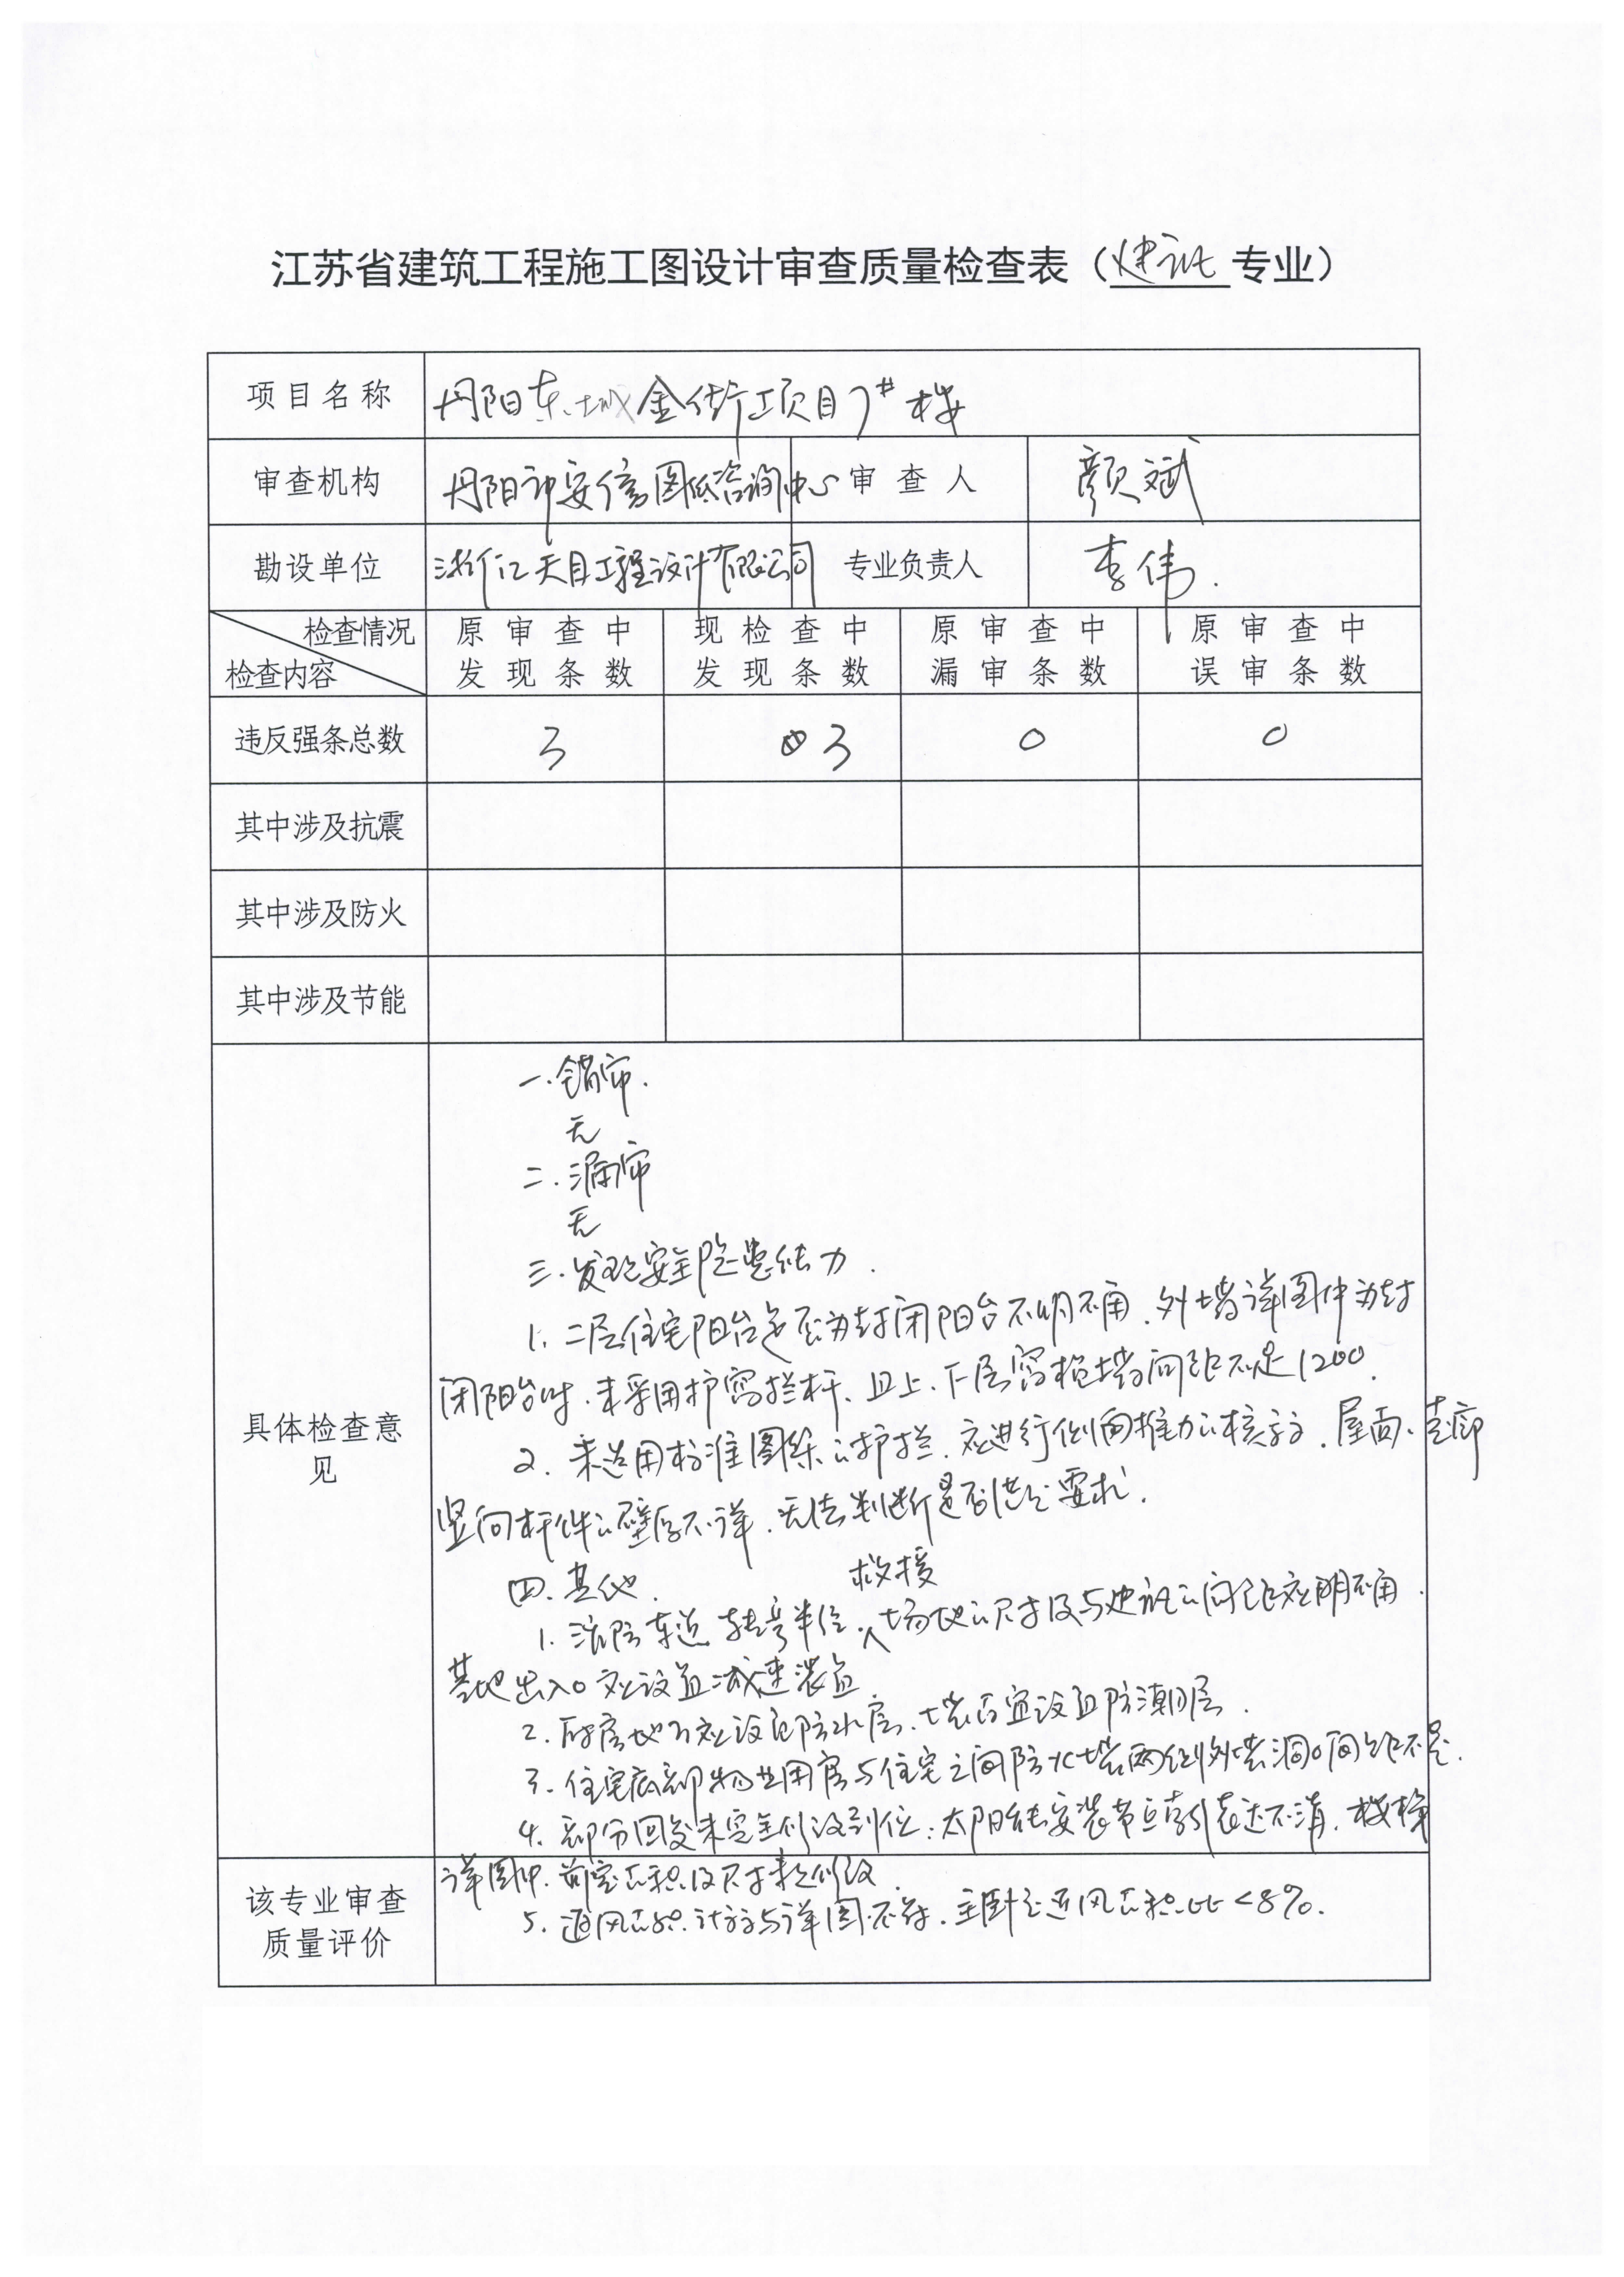 江苏省建筑工程施工图设计审查质量检查表（建筑专业）
项目名称 丹阳东城金街项目7#楼
审查机构 丹阳市安信图纸咨询中心 审查人 颜斌
勘设单位 浙江天目工程设计有限公司 专业负责人 李伟.
检查情况 检查内容
原审查中发现条数 现检查中发现条数 原审查中漏审条数 原审查中误审条数
违反强条总数 3 3 0 0
其中涉及抗震
其中涉及防火
其中涉及节能
具体检查意见
一.错审.
无
二.漏审
无
三.发现安全隐患能力.
1. 二层住宅阳台是否为封闭阳台不明确.外墙详图中为封
闭阳台时.未采用护窗栏杆、且上、下层窗槛墙间距不足1200.
2. 未选用标准图集的护栏.应进行侧向推力的核算.屋面、走廊
竖向杆件的壁厚不详.无法判断是否满足要求.
四.其他.
1. 消防车道转弯半径.救援场地的尺寸及与建筑的间距应明确.
基地出入口应设置减速装置.
2. 厨房地面应设置防水层.墙面宜设置防潮层.
3. 住宅底部物业用房与住宅之间防火墙两侧外墙洞口间距不足.
4. 部分回复未完全修改到位:太阳能安装节点索引表达不清.楼梯
详图中.前室面积及尺寸未修改.
5. 通风面积计算与详图不符.主卧室通风面积比<8%.
该专业审查质量评价